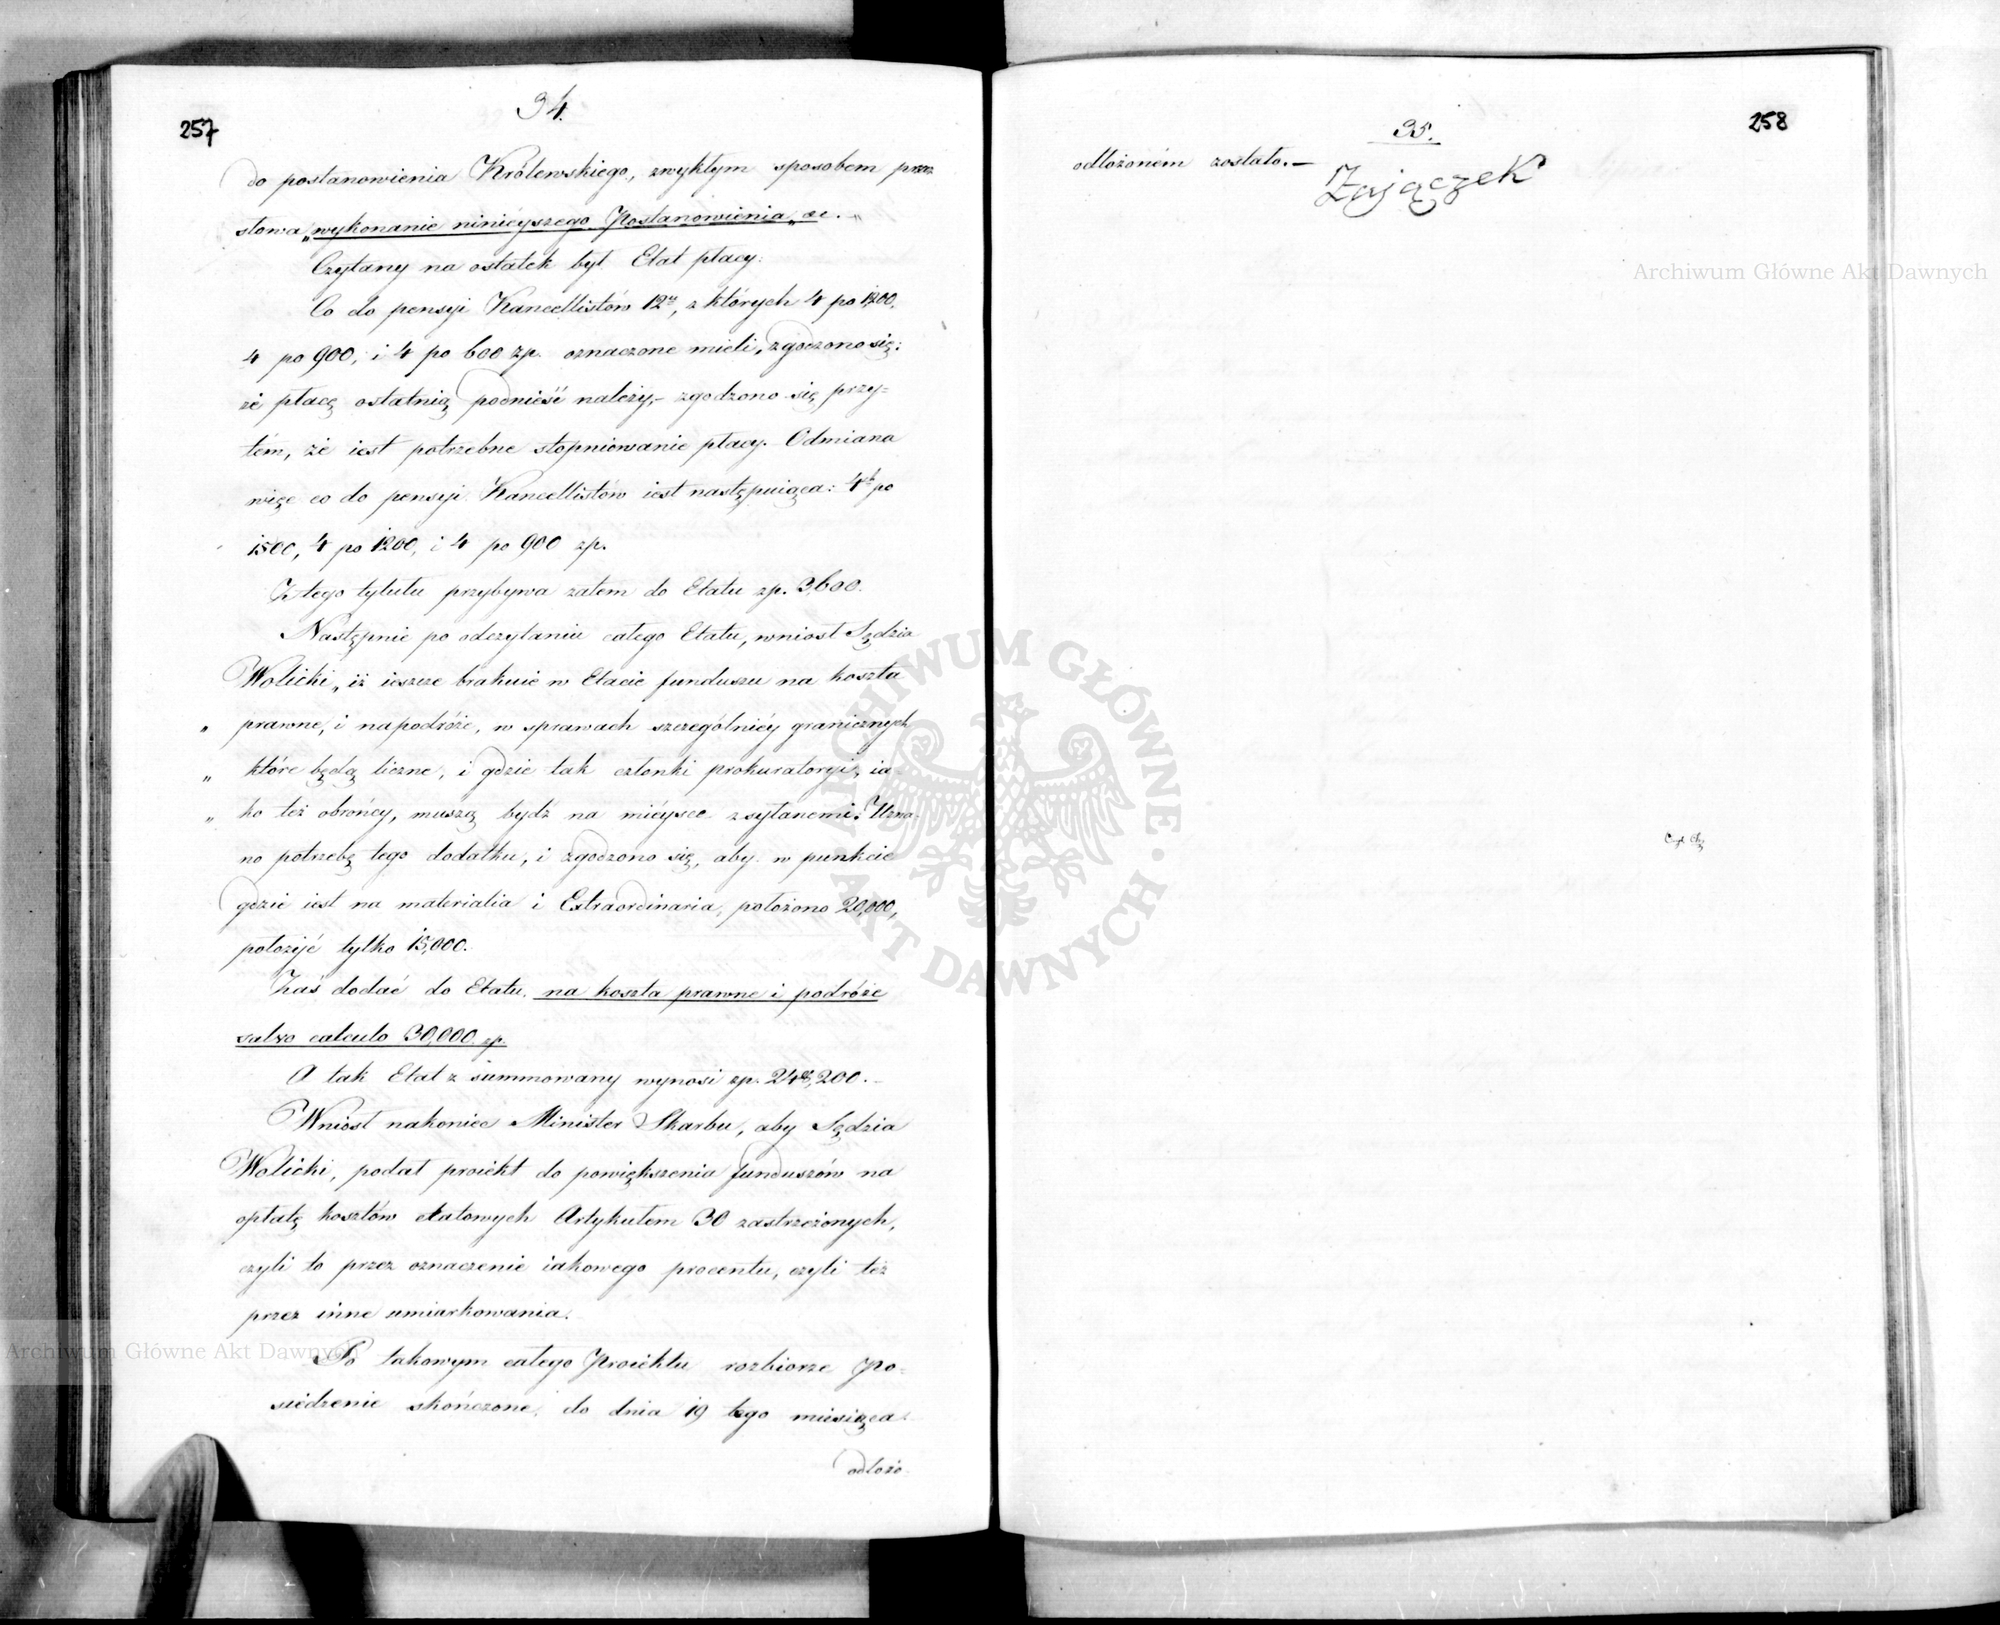 34.
257
do postanowienia Królewskiego, zwykłym sposobem przez
słowa „wykonanie ninieyszego Postanowienia„ &c. „
Czytany na ostatek był Etat płacy.
Co do pensyi Kancellistów 12u, z których 4 po 1200,
4 po 900, i 4 po 600 zp. oznaczone mieli, zgodzono się:
że płacę ostatnią podnieść należy,- zgodzono się przy=
tém, że iest potrzebne stopniowanie płacy. Odmiana
więc co do pensyi Kancellistów iest następuiąca: 4ch po
1500, 4 po 1200, i 4 po 900 zp.
Z tego tytułu przybywa zatem do Etatu zp. 3,600.
Następnie po odczytaniu całego Etatu, wniosł Sędzia
Wolicki, „iż ieszcze brakuie w Etacie funduszu na koszta
„ prawne, i na podróże, w sprawach szczególniéy granicznych
„ które będą liczne, i gdzie tak członki prokuratoryi, ia-
„ ko też obrońcy, muszą bydź na mieysce zsyłanemi. Uzna-
no potrzebę tego dodatku, i zgodzono się, aby w punkcie
gdzie iest na materialia i Extraordinaria, położono 20,000,
położyć tylko 15,000.
Zaś dodać do Etatu, na koszta prawne i podróże
salvo calculo 30,000 zp.
A tak Etat zsummowany wynosi zp. 248,200. -
Wniosł nakoniec Minister Skarbu, aby Sędzia
Wolicki, podał proiekt do powiększenia funduszów na
opłatę kosztów etatowych Artykułem 30 zastrzeżonych,
czyli to przez oznaczenie iakowego procentu, czyli też
przez inne umiarkowania.
Po takowym całego Proiektu rozbiorze po-
siedzenie skończone, do dnia 19 tego miesiąca
odłożo-
35.
258
odłożoném zostało.—
Zajączek
Archiwum Główne Akt Dawnych
ARCHIWUM GŁÓWNE · AKT DAWNYCH ·
Archiwum Główne Akt Dawnych